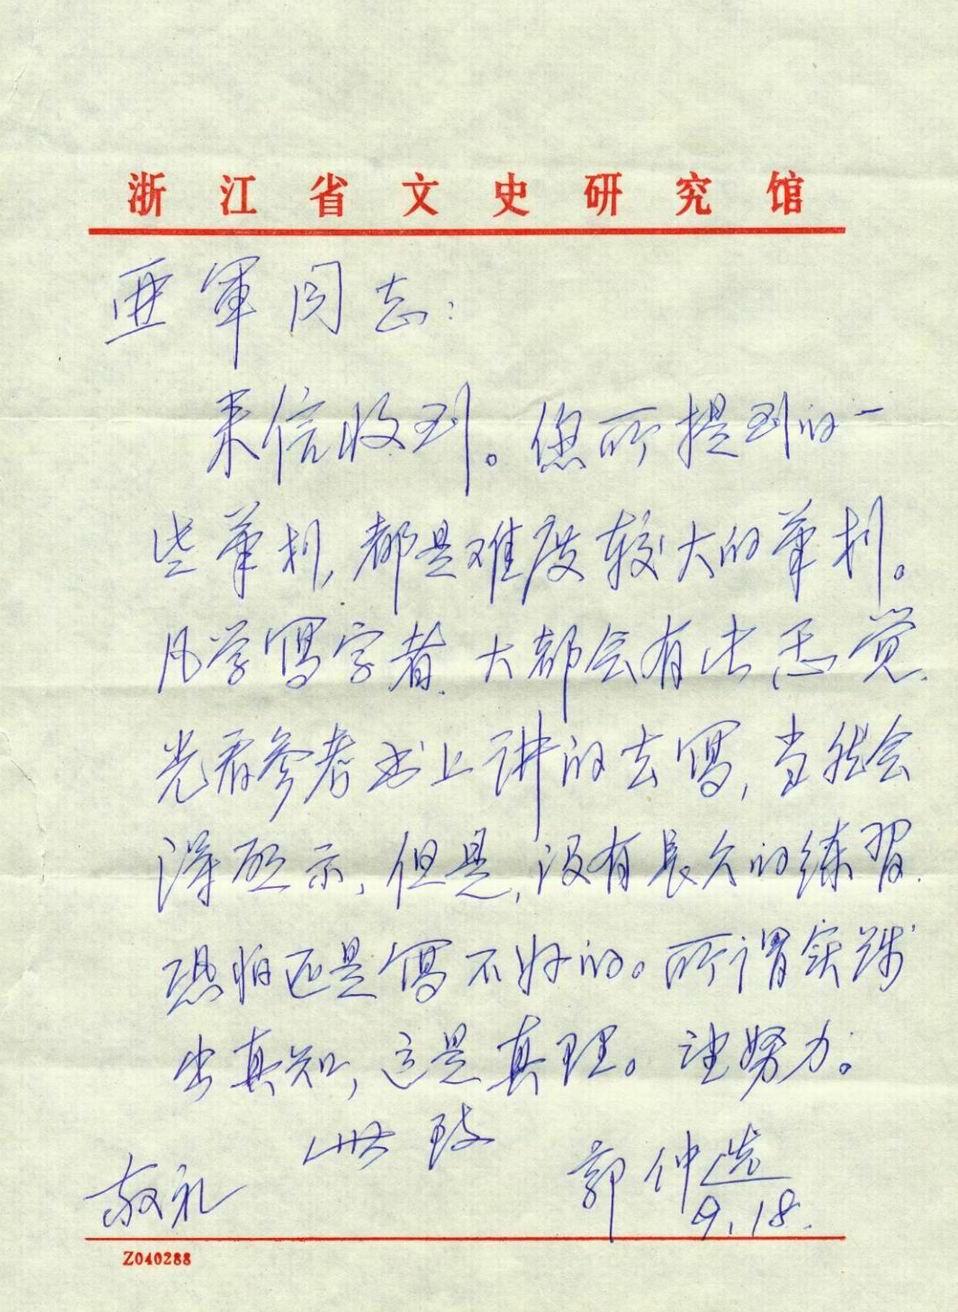 浙江省文史研究馆
亜軍同志：
来信收到。您所提到的一
些笔划，都是难度较大的笔划。
凡学写字者，大都会有此感觉，
光看参考书上讲的去写，当然会
得启示，但是，没有长久的练習，
恐怕还是写不好的。所谓实践
出真知，这是真理。望努力。
此致
敬礼
郭仲选
9.18.
Z040288